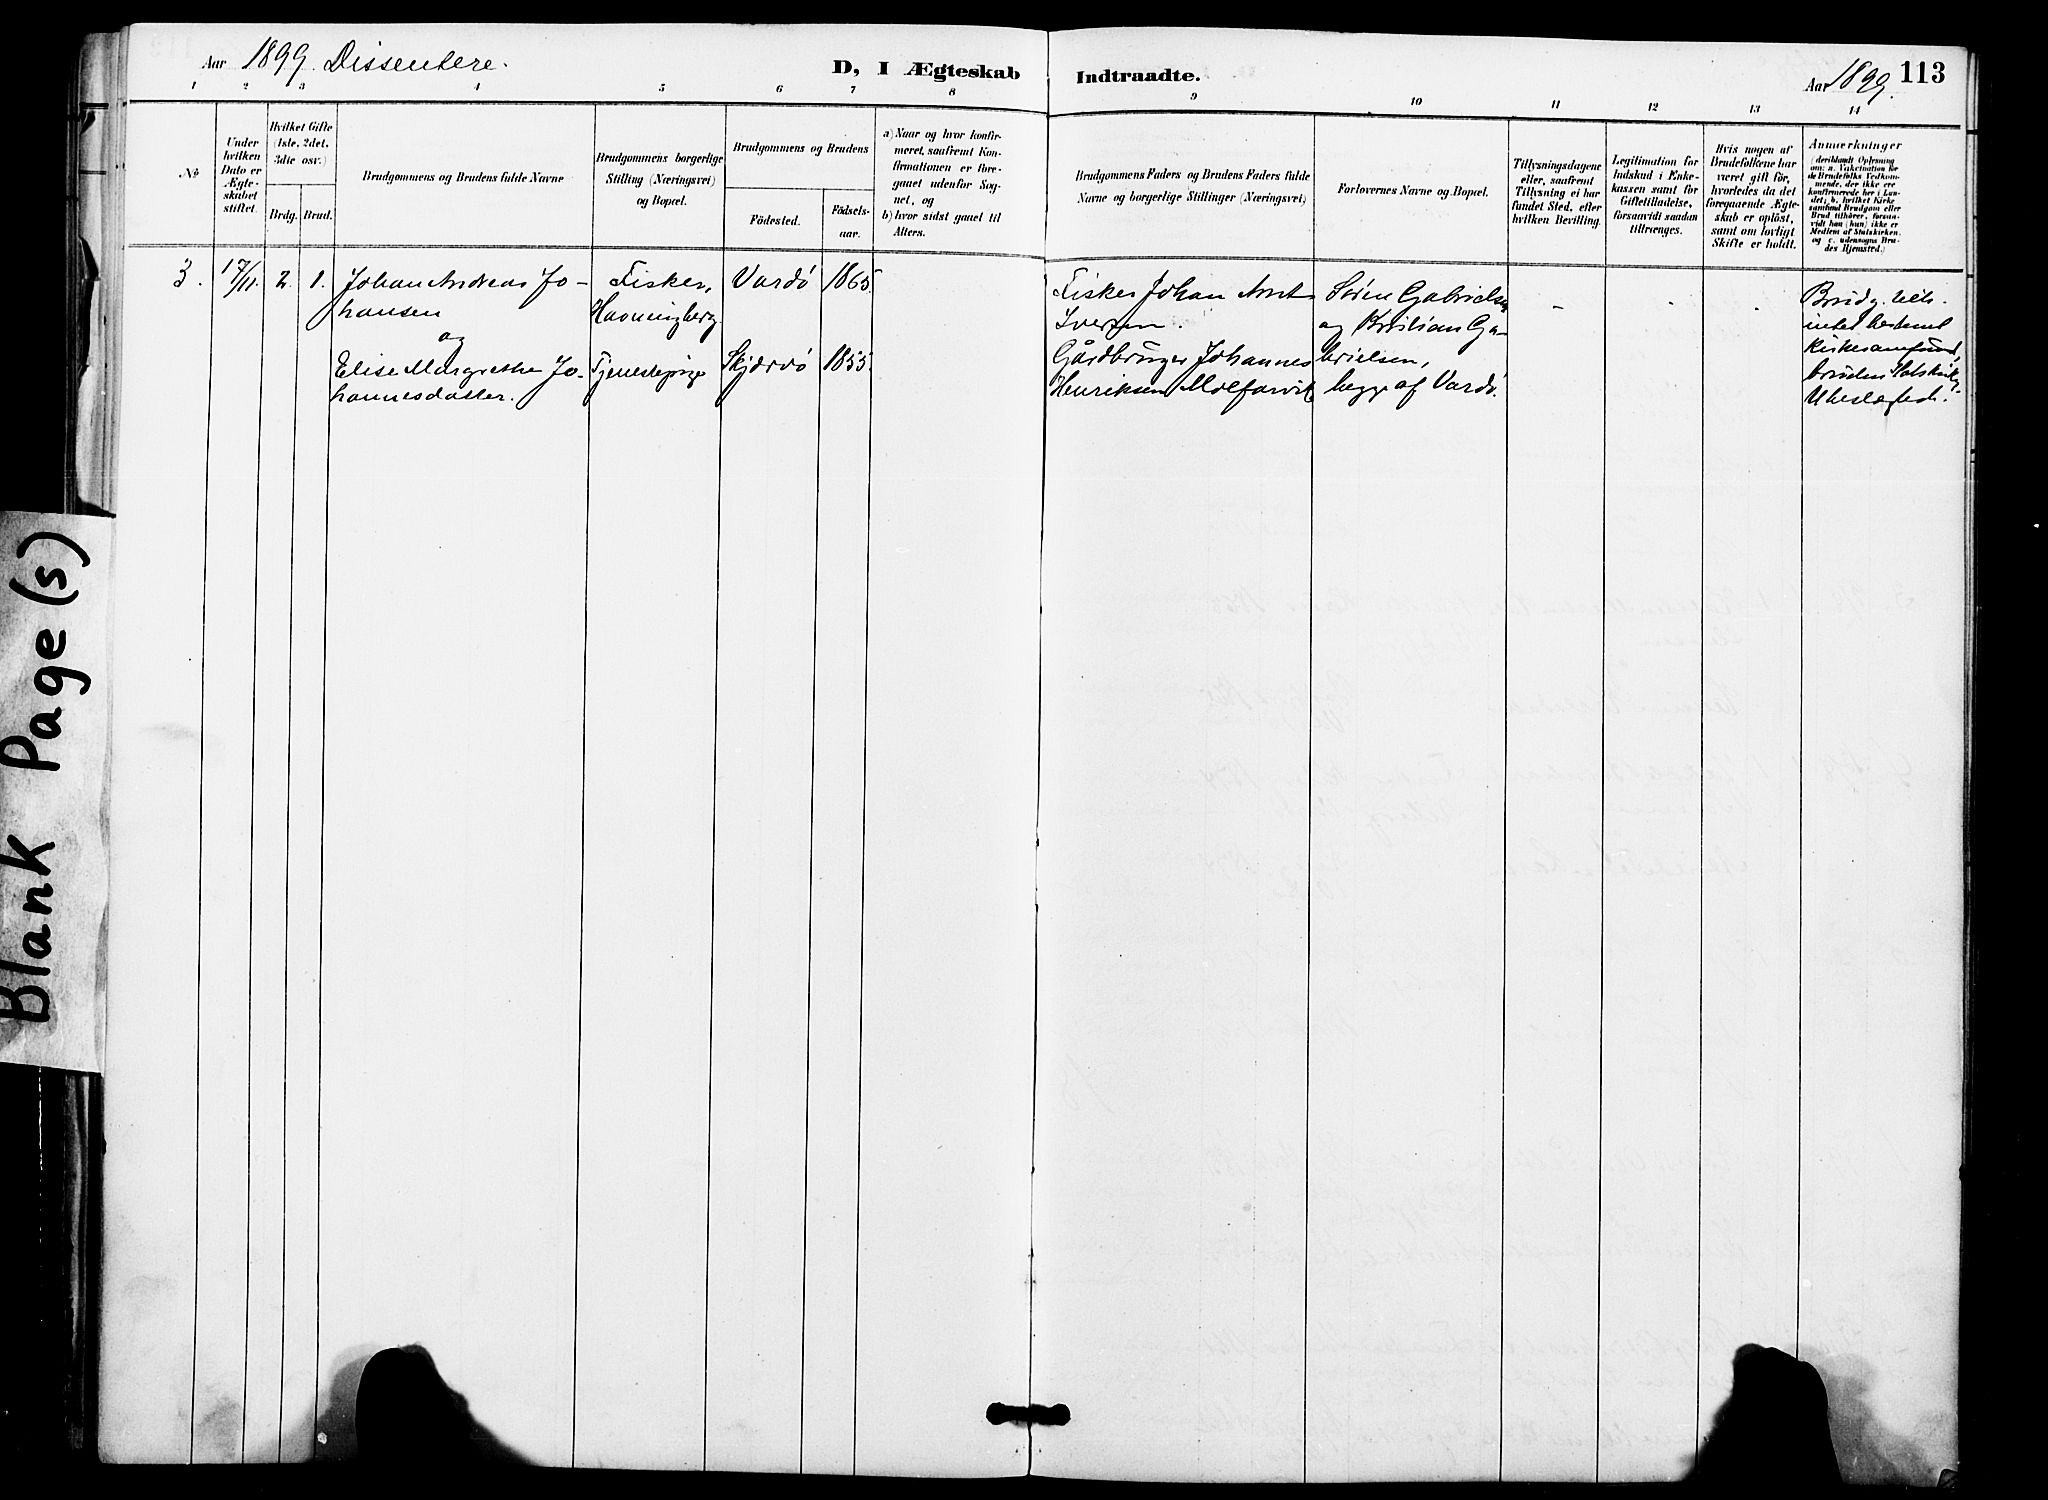 Aar 1899. Dissentere.
D, I Ægteskab
Indtraadte.
Aar 1899.
113
1 2 3 4 5 6 7 8 9 10 11 12 13 14
No
Under
hvilken
Dato er
Ægte-
skabet
stiftet.
Hvilket Gifte
(1ste, 2det,
3die osv.)
Brdg. Brud.
Brudgommens og Brudens fulde Navne
Brudgommens borgerlige
Stilling (Næringsvei)
og Bopæl.
Brudgommens og Brudens
Födested.
Födsels-
aar.
a) Naar og hvor konfir-
meret, saafremt Kon-
firmationen er fore-
gaaet udenfor Sog-
net, og
b) hvor sidst gaaet til
Alters.
Brudgommens Faders og Brudens Faders fulde
Navne og borgerlige Stillinger (Næringsvei)
Forlovernes Navne og Bopæl.
Tillysningsdagene
eller, saafremt
Tillysning ei har
fundet Sted, efter
hvilken Bevilling.
Legitimation for
Indskud i Enke-
kassen samt for
Giftetilladelse,
forsaavidt saadan
tiltrænges.
Hvis nogen af
Brudefolkene har
været gift før,
hvorledes da det
foregaaende Ægte-
skab er opløst,
samt om lovligt
Skifte er holdt.
Anmærkninger
(deriblandt Oplysning
om: a. Vakcination for
de Brudefolks Vedkom-
mende, der ikke ere
konfirmerede her i Lan-
det; b. hvilket Kirke
samfund Brudgom eller
Brud tilhører, forsaa-
vidt han (hun) ikke er
Medlem af Statskirken,
og c. udensogns Bru-
des Hjemsted.)
3. 17/11. 2. 1.
Johan Andreas Jo-
hansen
og
Elise Margrethe Jo-
hannesdatter.
Fisker,
Havningberg
Tjenestepige
Vardö 1865.
Skjærvö 1855.
Fisker Johan Arnt
Iversen.
Gårdbruger Johannes
Henriksen
Sören Gabrielsen
og Kristian Ga-
brielsen,
begge af Vardö.
Brudg.
intet bestemt
kirkesamfund,
bruden statskirk.
Ubeslægted.
Blank Page(s)